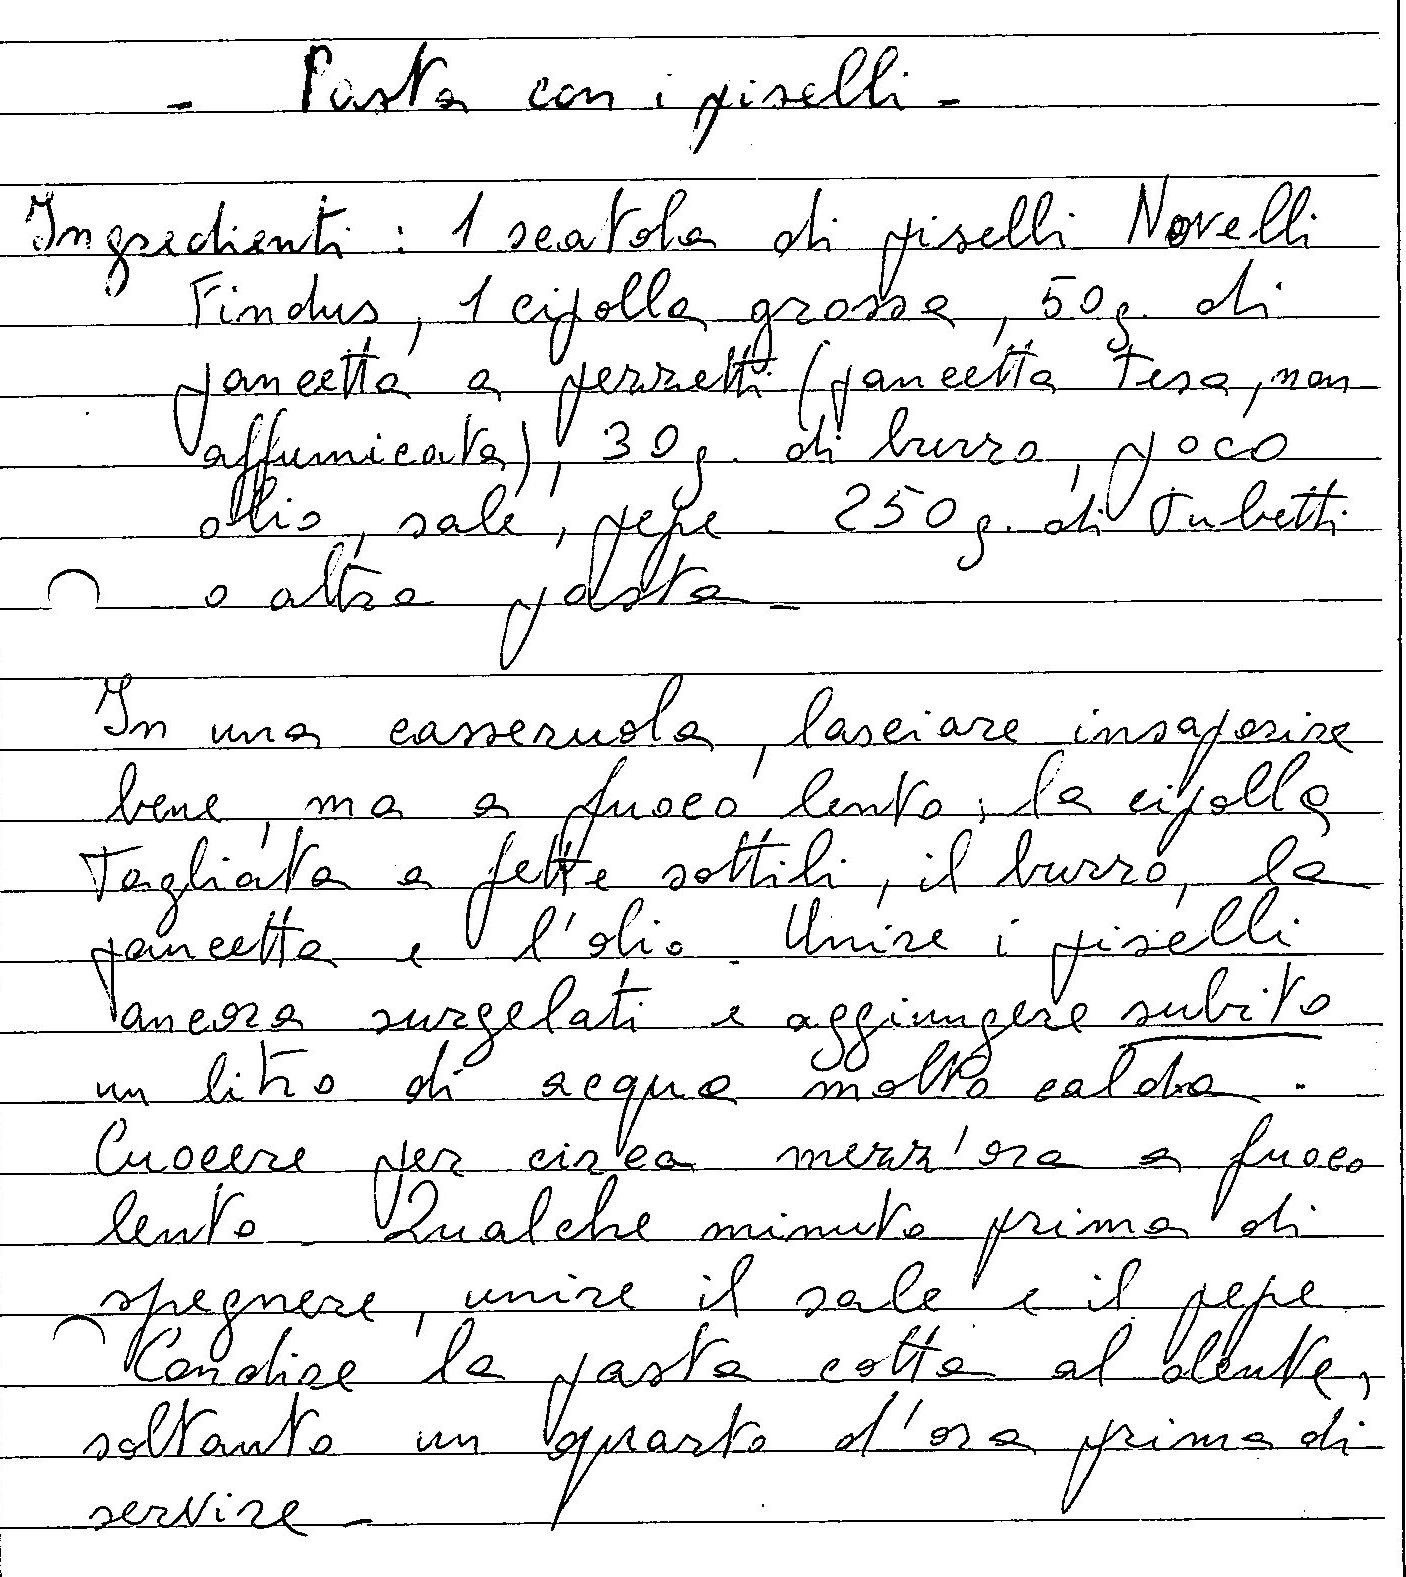 - Pasta con i piselli -
Ingredienti : 1 scatola di piselli Novelli
Findus, 1 cipolla grossa, 50g. di
pancetta a pezzetti (pancetta tesa, non
affumicata), 30g. di burro, poco
olio, sale, pepe - 250g. di Tubetti
o altra pasta -
In una casseruola, lasciare insaporire
bene, ma a fuoco lento, la cipolla
tagliata a fette sottili, il burro, la
pancetta e l'olio. Unire i piselli
ancora surgelati e aggiungere subito
un litro di acqua molto calda.
Cuocere per circa mezz'ora a fuoco
lento - Qualche minuto prima di
spegnere, unire il sale e il pepe
Condire la pasta cotta al dente,
soltanto un quarto d'ora prima di
servire -